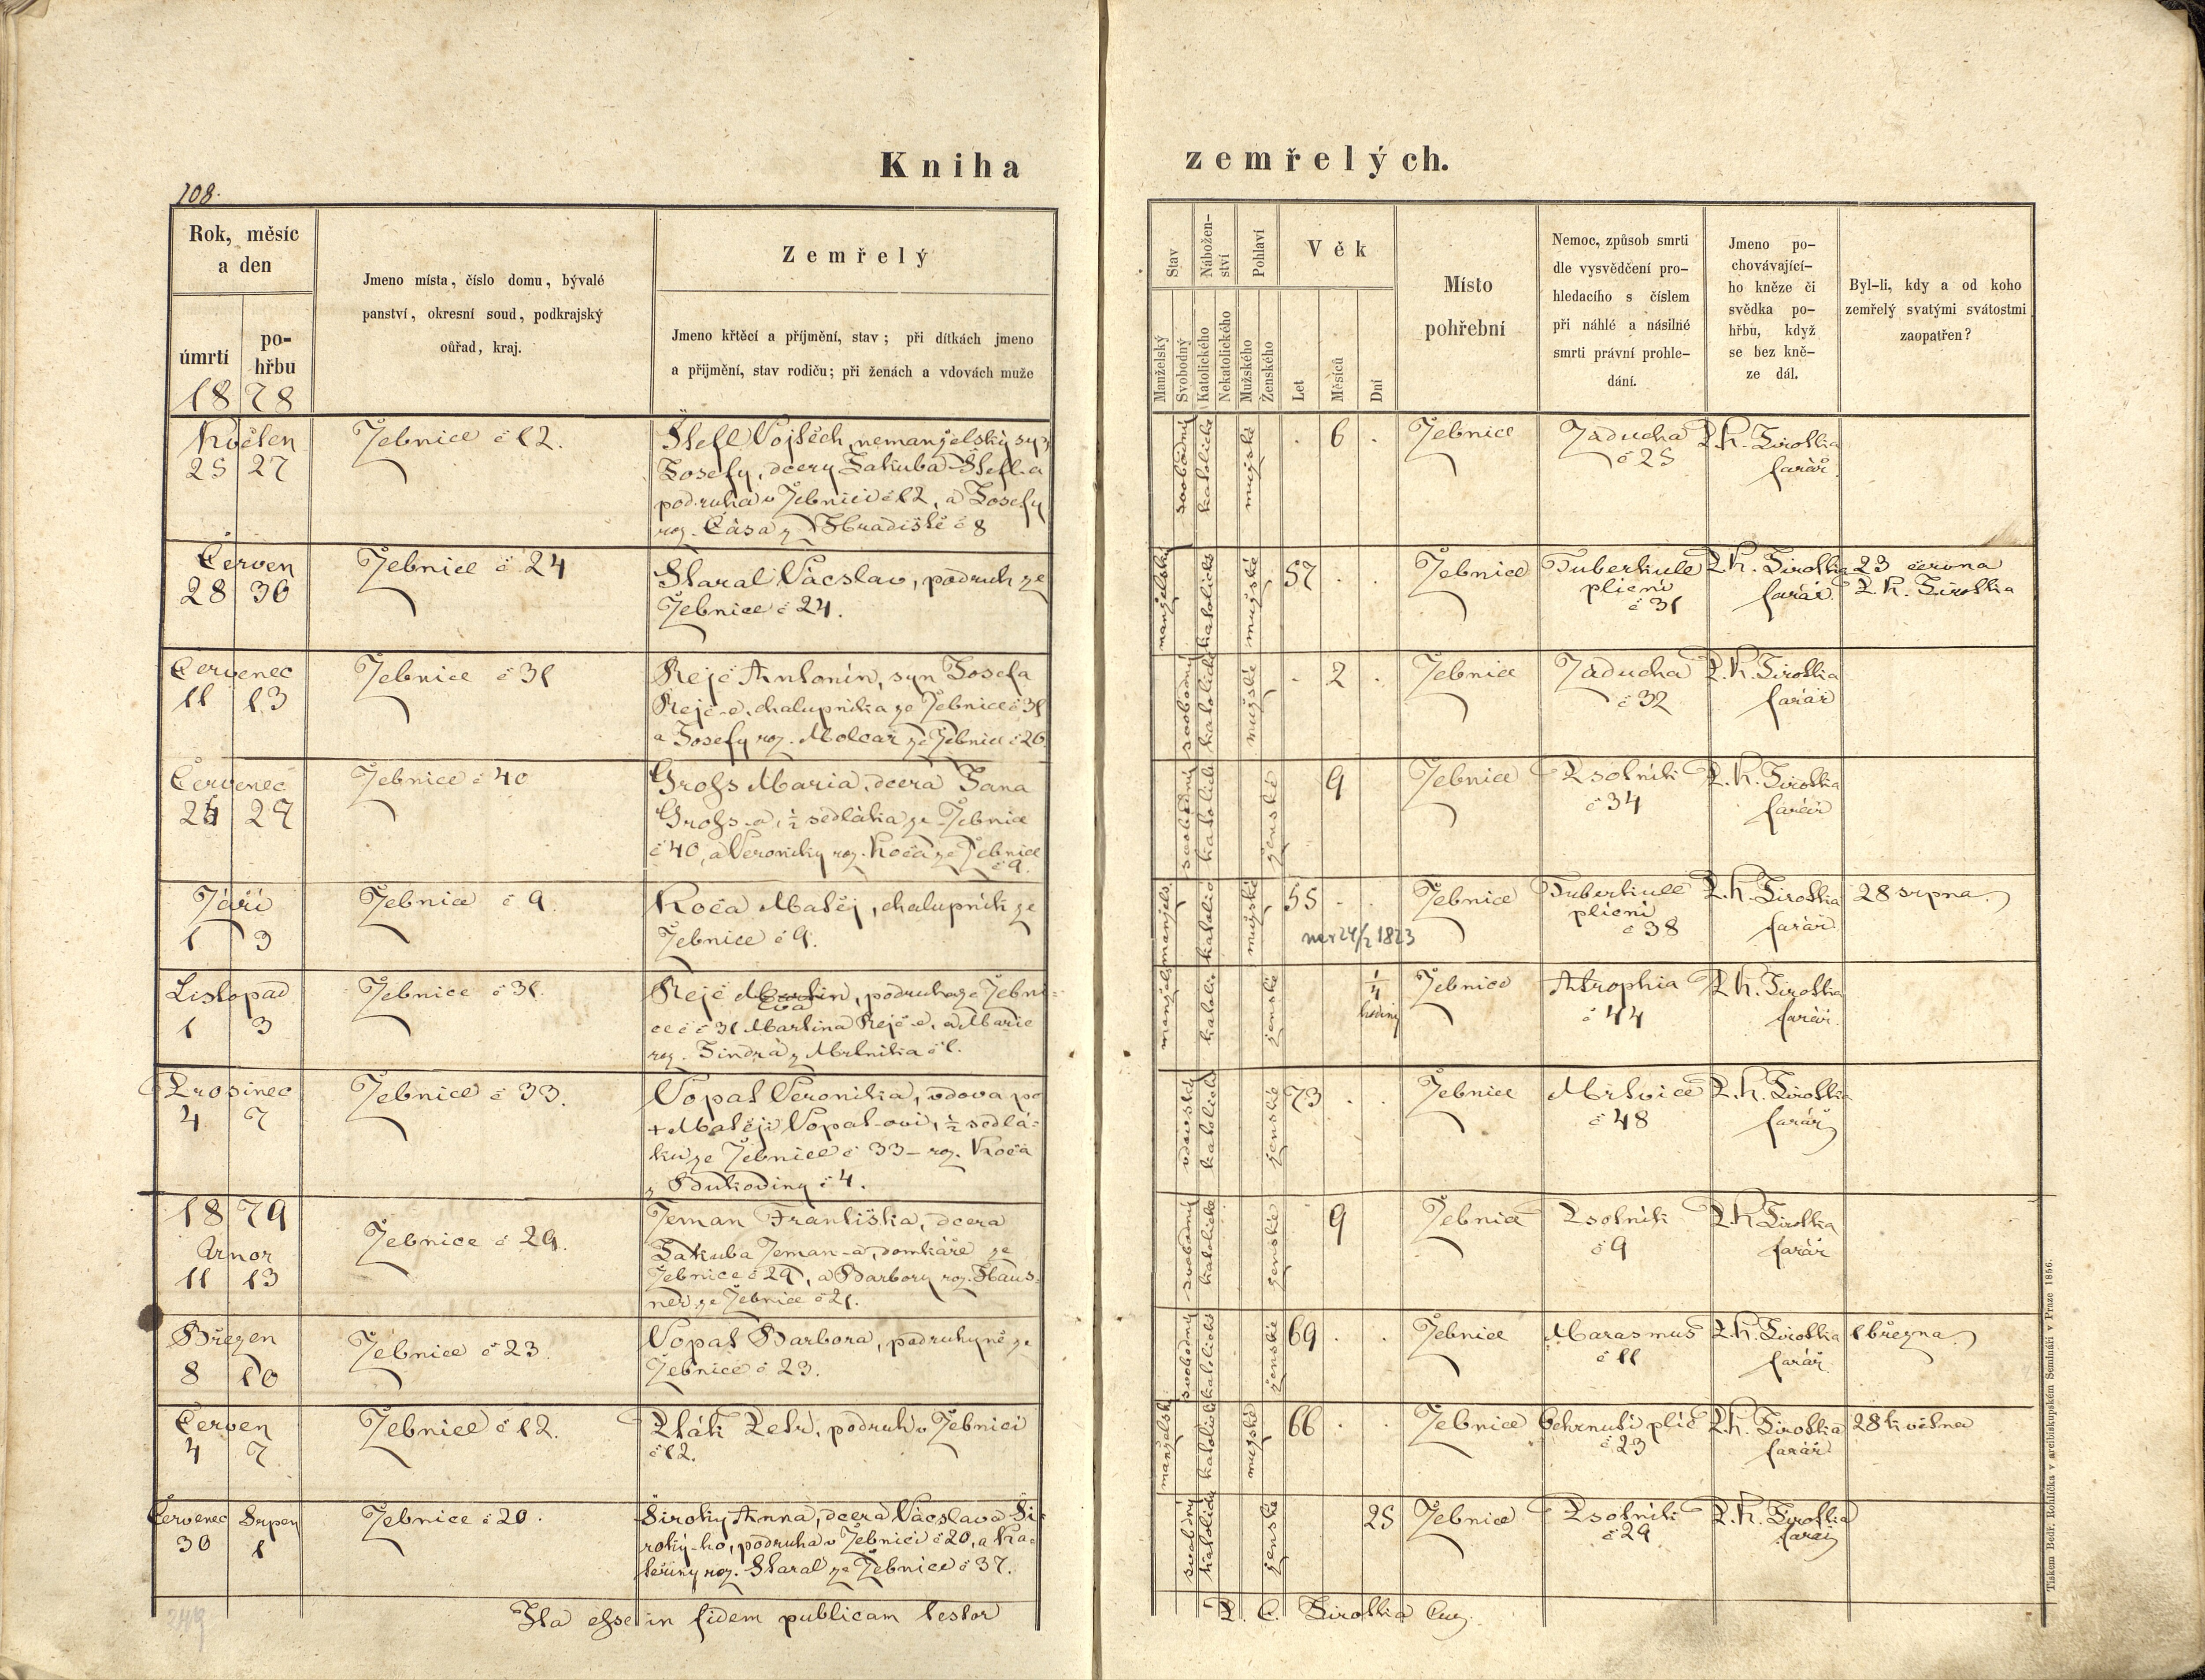 Kniha
zemřelých.
108.
Rok, měsíc
a den
úmrtí
po-
hřbu
1878
Jmeno místa, číslo domu, bývalé
panství, okresní soud, podkrajský
ouřad, kraj.
Zemřelý
Jmeno křtěcí a příjmění, stav; při dítkách jmeno
a přijmění, stav rodiču; při ženách a vdovách muže
Stav
Manželský
Svobodný
Nábožen-
ství
Katolického
Nekatolického
Pohlaví
Mužského
Ženského
Věk
Let
Měsíců
Dní
Místo
pohřební
Nemoc, způsob smrti
dle vysvědčení pro-
hledacího s číslem
při náhlé a násilné
smrti právní prohle-
dání.
Jmeno po-
chovávající-
ho kněze či
svědka po-
hřbu, když
se bez kně-
ze dál.
Byl-li, kdy a od koho
zemřelý svatými svátostmi
zaopatřen?
Květen
25 27
Žebnice č 12.
Štefl Vojtěch, nemanželský syn
Josefy, dcery Jakuba Štefl-a
podruha v Žebnici č 12, a Josefy
roz. Čása z Hradiště č 8
svobodný
katolické
mužské
6
Žebnice
Záducha
č 25
P. K. Sirotka
farář
Červen
28 30
Žebnice č 24
Staral Vácslav, podruh ze
Žebnice č 24.
manželský
katolické
mužské
57
Žebnice
Tuberkule
plicní
č 31
P. K. Sirotka
farář
23 června
P. K. Sirotka
Červenec
11 13
Žebnice č 31
Rejč Antonín, syn Josefa
Rejč-e, chalupníka ze Žebnice č 31
a Josefy roz. Molcar ze Žebnice č 26.
svobodný
katolické
mužské
2
Žebnice
Záducha
č 32
P. K. Sirotka
farář
Červenec
27
Žebnice č 40
Grofs Maria, dcera Jana
Grofs-a, ½ sedláka ze Žebnice
č 40, a Veroniky roz. Koča ze Žebnice
č 9.
svobodný
katolické
ženské
9
Žebnice
Psotník
č 34
P. K. Sirotka
farář
Září
1 3
Žebnice č 9
Koča Matěj, chalupník ze
Žebnice č 9.
manžels.
katolic
mužské
55
nar 24/2 1823
Žebnice
Tuberkule
plicní
č 38
P. K. Sirotka
farář
28 srpna
Listopad
1 3
Žebnice č 31.
Rejč Martin, podruha ze Žebni-
Eva
ce č 31 Martina Rejč-e, a Marie
roz. Jindra z Mrtníka č 1.
manžels
katolic
ženské
¼
hodiny
Žebnice
Atrophia
č 44
P. K. Sirotka
farář
Prosinec
4 7
Žebnice č 33.
Vopat Veronika, vdova po
+ Matěji Vopat-ovi, ½ sedlá-
ku ze Žebnice č 33 - roz. Koča
z Bukoviny č 4.
vdovská
katolické
ženské
73
Žebnice
Mrtvice
č 48
P. K. Sirotka
farář
1879
Únor
11 13
Žebnice č 29.
Zeman Františka, dcera
Jakuba Zeman-a, domkáře ze
Žebnice č 29, a Barbory roz. Haus-
ner ze Žebnice č 21.
svobodný
katolické
ženské
9
Žebnice
Psotník
č 9
P. K. Sirotka
farář
Březen
8 10
Žebnice č 23.
Vopat Barbora, podruhyně ze
Žebnice č 23.
svobodný
katolické
ženské
69
Žebnice
Marasmus
č 11
P. K. Sirotka
farář
1 března
Červen
4 7
Žebnice č 12.
Pták Petr, podruh v Žebnici
č 12.
manželský
katolické
mužské
66
Žebnice
Ochrnutí plic
č 23
P. K. Sirotka
farář
28 května
Červenec Srpen
30 1
Žebnice č 20.
Široký Anna, dcera Vácslava Ši-
roký-ho, podruha v Žebnici č 20, a Ka-
teřiny roz. Staral ze Žebnice č 37.
svobodný
katolické
ženské
25
Žebnice
Psotník
č 29
P. K. Sirotka
farář
Ita efse in fidem publicam testor
P. C. Sirotka
Tiskem Bedř. Rohlíčka v arcibiskupském Semináři v Praze 1856.